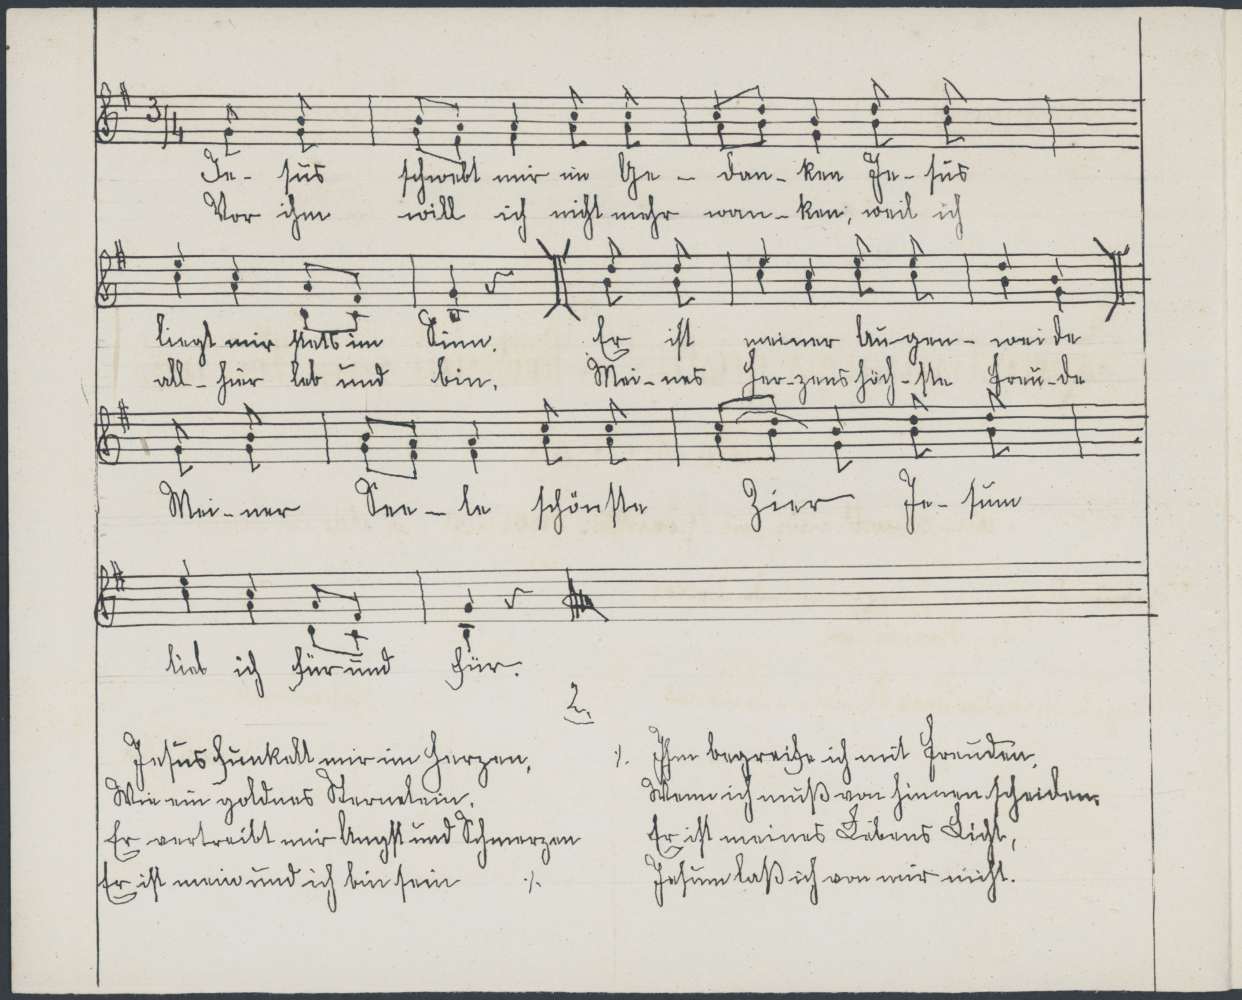 3/4
Je- sus schwebt mir im Ge - dan- ken Je- sus
Vor ihm will ich nicht mehr wan- ken, weil ich
liegt mir stets im Sinn. Er ist meiner Augen- weide
all- hier leb und bin. Mei- nes Her-zens höch- ste Freu-de
Mei- ner See - le schönste Zier Je- sum
lieb ich für und für.
2.
Jesus funkelt mir im Herzen,
Wie ein goldnes Sternelein.
Er vertreibt mir Angst und Schmerzen
Er ist mein und ich bin sein ·/.
·/. Ihm begreife ich mit Freuden,
Wenn ich muß von hinnen scheiden.
Er ist meines Lebens Licht,
Jesum laß ich von mir nicht.